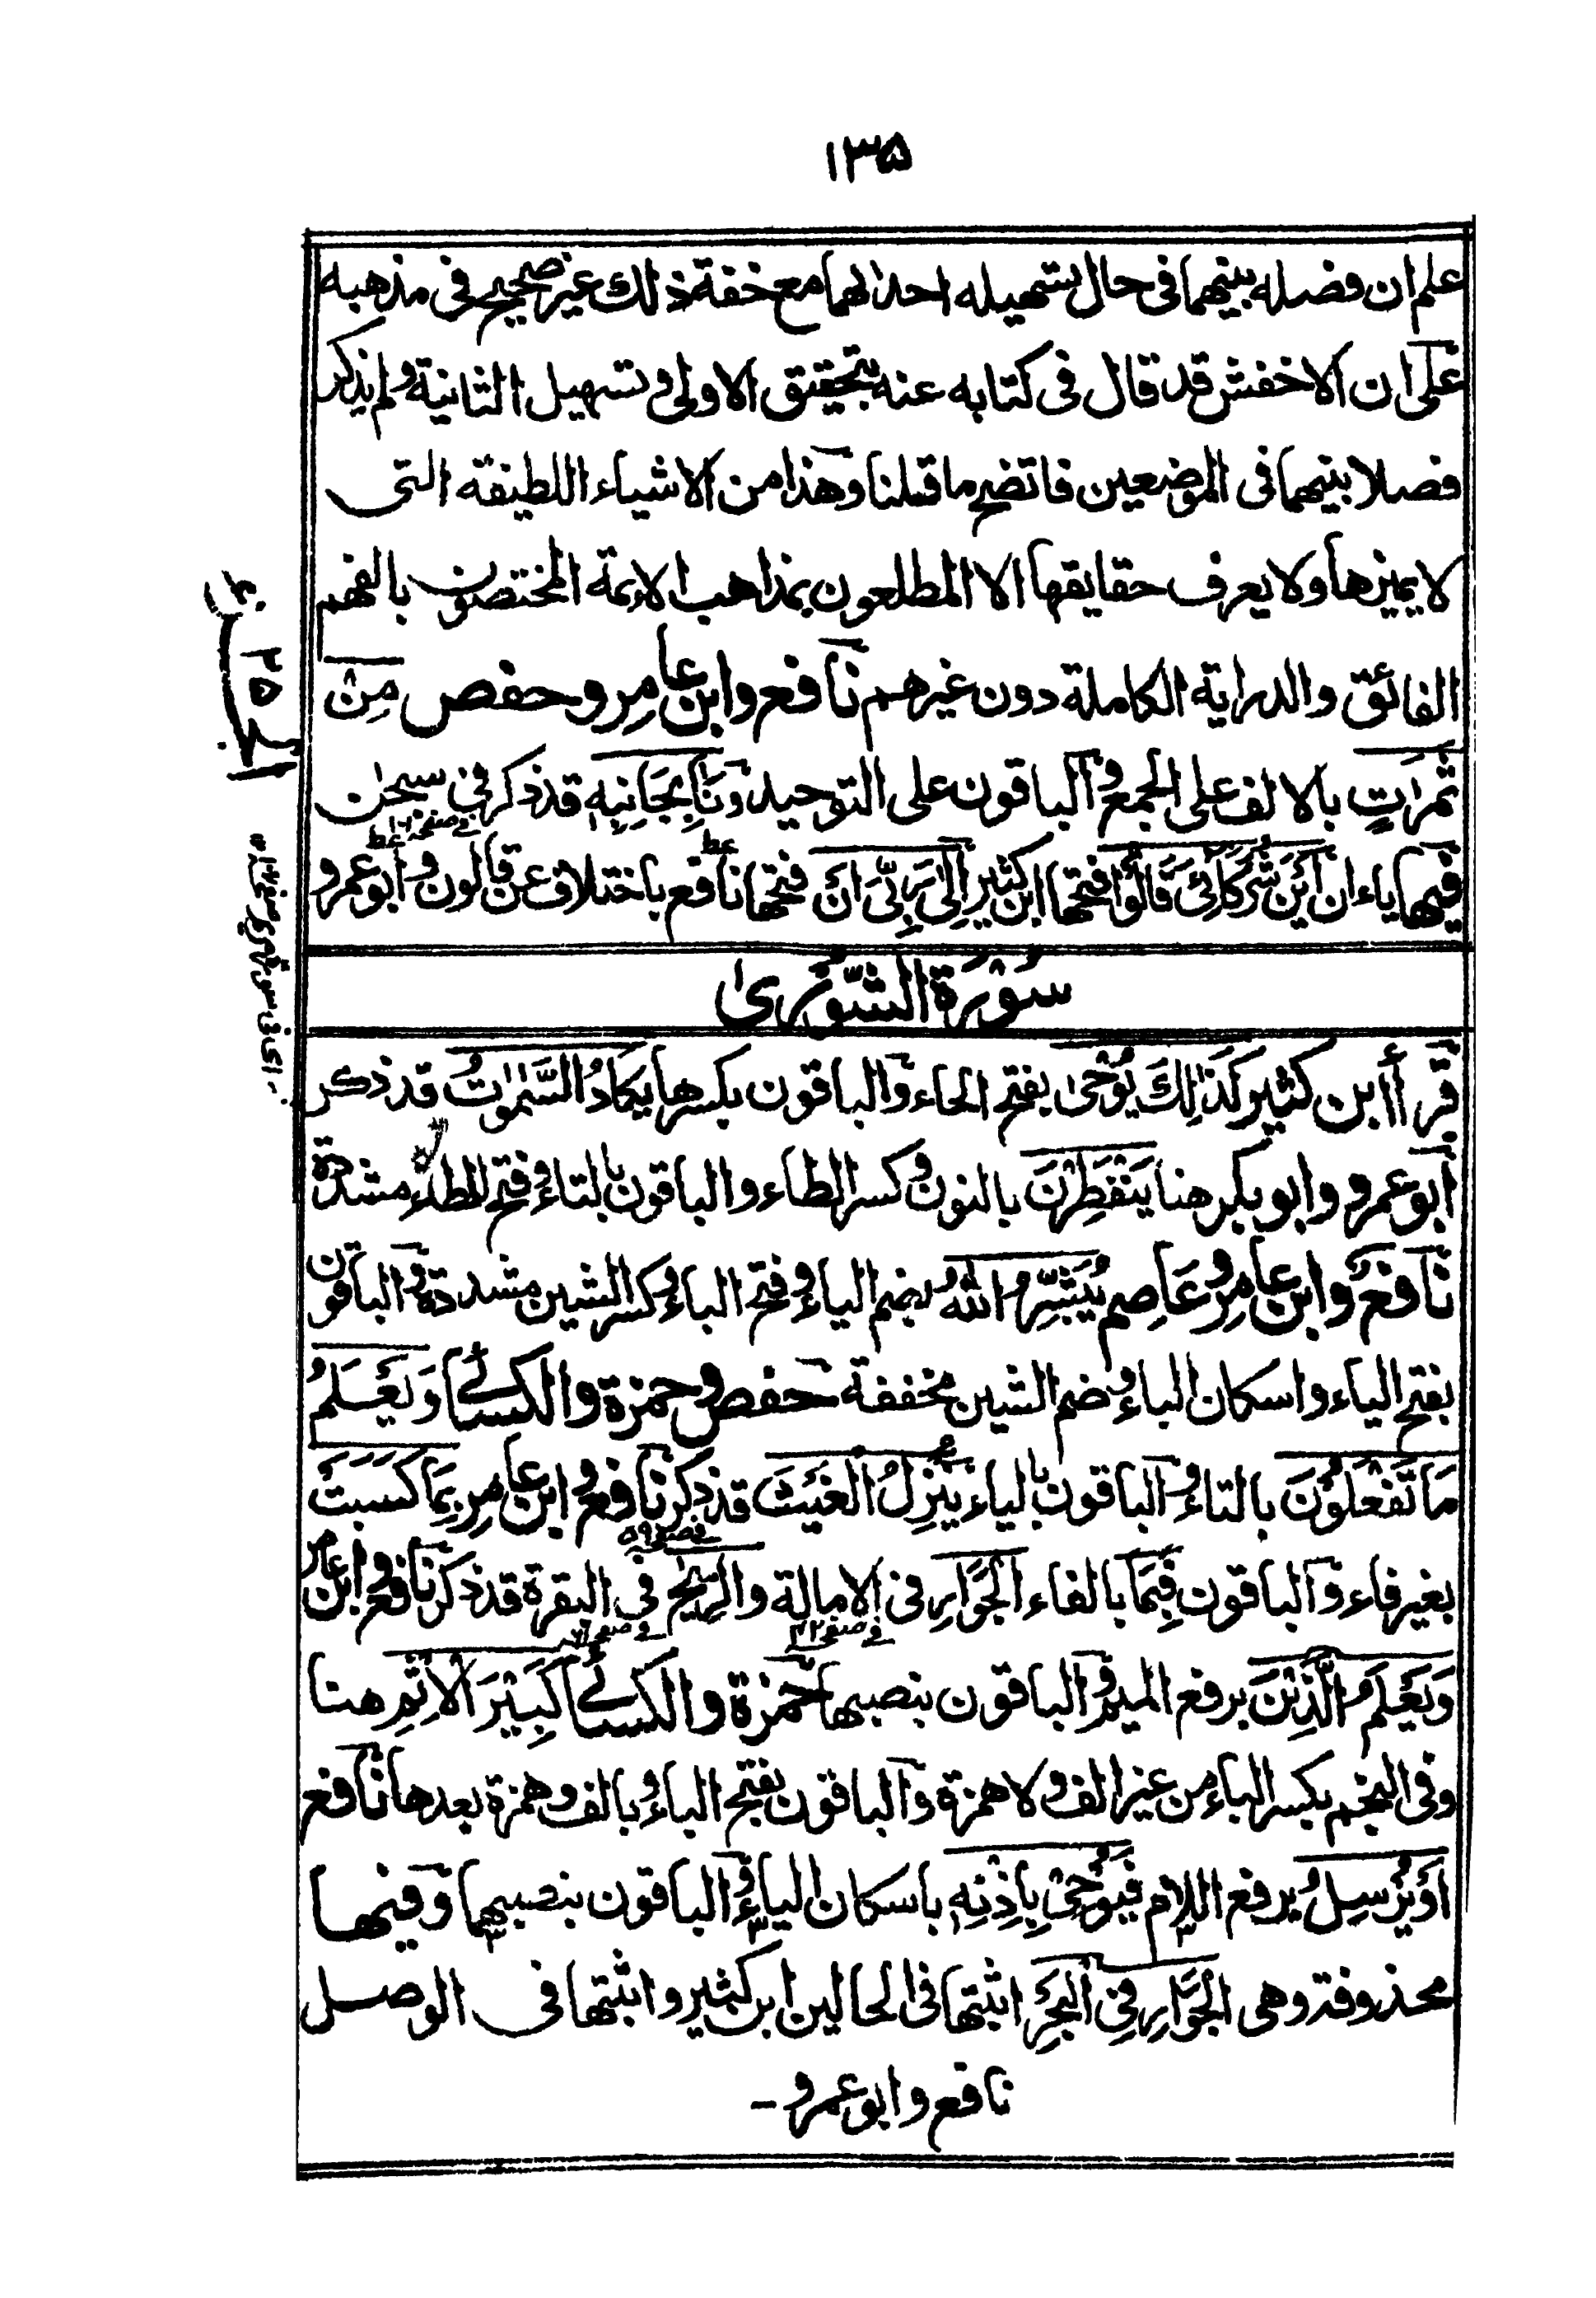 ١٣٥
علم ان فصله بينهما فى حال تسهيله احدٰىهما مع خفة ذلك غير صحيح فى مذهبه
على ان الاخفش قد قال فى كتابه عنه بتحقيق الاولى و تسهيل الثانية ولم يذكر
فصلا بينهما فى الموضعين فاتضح ما قلنا وهذا من الاشياء اللطيفة التى
لا يميزها ولا يعرف حقايقها الا المطلعون بمذاهب الائمة المختصون بالفهم
الفائق والدراية الكاملة دون غيرهم نافع وابن عامر وحفص مِنْ
ثَمَرٰتٍ بالالف على الجمع والباقون على التوحيد وَنَاٰ بِجَانِبِهٖ قد ذكر فى سبحٰن
فى صفحه
فيها ياء ان اَيْنَ شُرَكَآئِيَ قَالُوْا فتحها ابن كثير اِلٰى رَبِّىَ اِنَّ فتحها نافع باختلاف عن قالون وابو عمرو
سُوْرَةُ الشُّوْرٰى
قرأ ابن كثير كَذٰلِكَ يُوْحٰى بفتح الحاء والباقون بكسرها يَكَادُ السَّمٰوٰتُ قد ذكر
ابو عمرو وابو بكر هنا يَنْفَطِرْنَ بالنون وكسر الطاء والباقون بالتاء وفتح الطاء مشددة
نافع وابن عامر وعاصم يُبَشِّرُ اللّٰهُ بضم الياء وفتح الباء وكسر الشين مشددة والباقون
بفتح الياء واسكان الباء وضم الشين مخففة حفص وحمزة والكسائى وَيَعْلَمُ
مَا تَفْعَلُوْنَ بالتاء والباقون بالياء يُنَزِّلُ الْغَيْثَ قد ذكر نافع وابن عامر بِمَا كَسَبَتْ
فى صفحه ٥٩
بغير فاء والباقون فَبِمَا بالفاء الْجَوَارِ فى الامالة والرِّيٰحَ فى البقرة قد ذكر نافع وابن عامر
فى صفحه ٤٢ فى صفحه
وَيَعْلَمُ الَّذِيْنَ برفع الميم والباقون بنصبها حمزة والكسائى كَبِيْرَ الْاِثْمِ هنا
وفى النجم بكسر الباء من غير الف ولا همزة والباقون بفتح الباء وبالف وهمزة بعدها نافع
اَوْ يُرْسِلُ برفع اللام فَيُوْحِىْ بِاِذْنِهٖ باسكان الياء والباقون بنصبهما وفيها
محذوفة وهى الْجَوَارِ فِى الْبَحْرِ اثبتها فى الحالين ابن كثير واثبتها فى الوصل
نافع وابو عمرو -
الجزء ٢٥